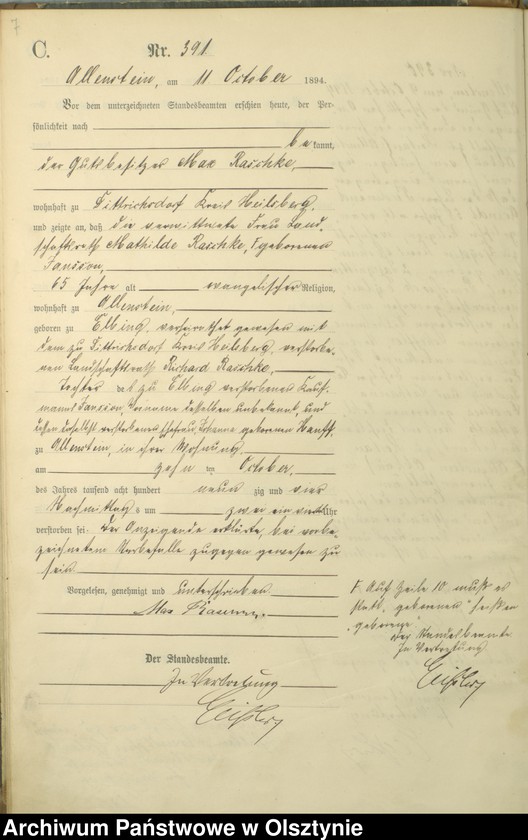 7
C.
Nr. 391.
Allenstein, am 11 October 1894.
Vor dem unterzeichneten Standesbeamten erschien heute, der Per-
sönlichkeit nach
bekannt,
der Gutsbesitzer Max Raschke,
wohnhaft zu Dittrichsdorf Kreis Heilsberg,
und zeigte an, daß die verwittwete Frau Land-
schaftsrath Mathilde Raschke, geborenen
Jansson,
65 Jahre alt evangelischer Religion,
wohnhaft zu Allenstein,
geboren zu Elbing, verheirathet gewesen mit
dem zu Dittrichsdorf Kreis Heilsberg, verstorbe-
nen Landschaftsrath Richard Raschke,
Tochter des zu Elbing verstorbenen Kauf-
manns Jansson, Vorname desselben unbekannt, und
dessen daselbst verstorbenen Ehefrau, Johanna geborenen Hanff,
zu Allenstein, in ihrer Wohnung,
am zehn ten October,
des Jahres tausend acht hundert neun zig und vier
Nachmittags um zwei ein viertel Uhr
verstorben sei. Der Anzeigende erklärte, bei vorbe-
zeichnetem Sterbefalle zugegen gewesen zu
sein.
Vorgelesen, genehmigt und unterschrieben
Max Raschke.
Auf Zeile 10 muß es
statt „geborenen" heißen
„geborene"
Der Standesbeamte
In Vertretung.
Der Standesbeamte.
In Vertretung
Archiwum Państwowe w Olsztynie